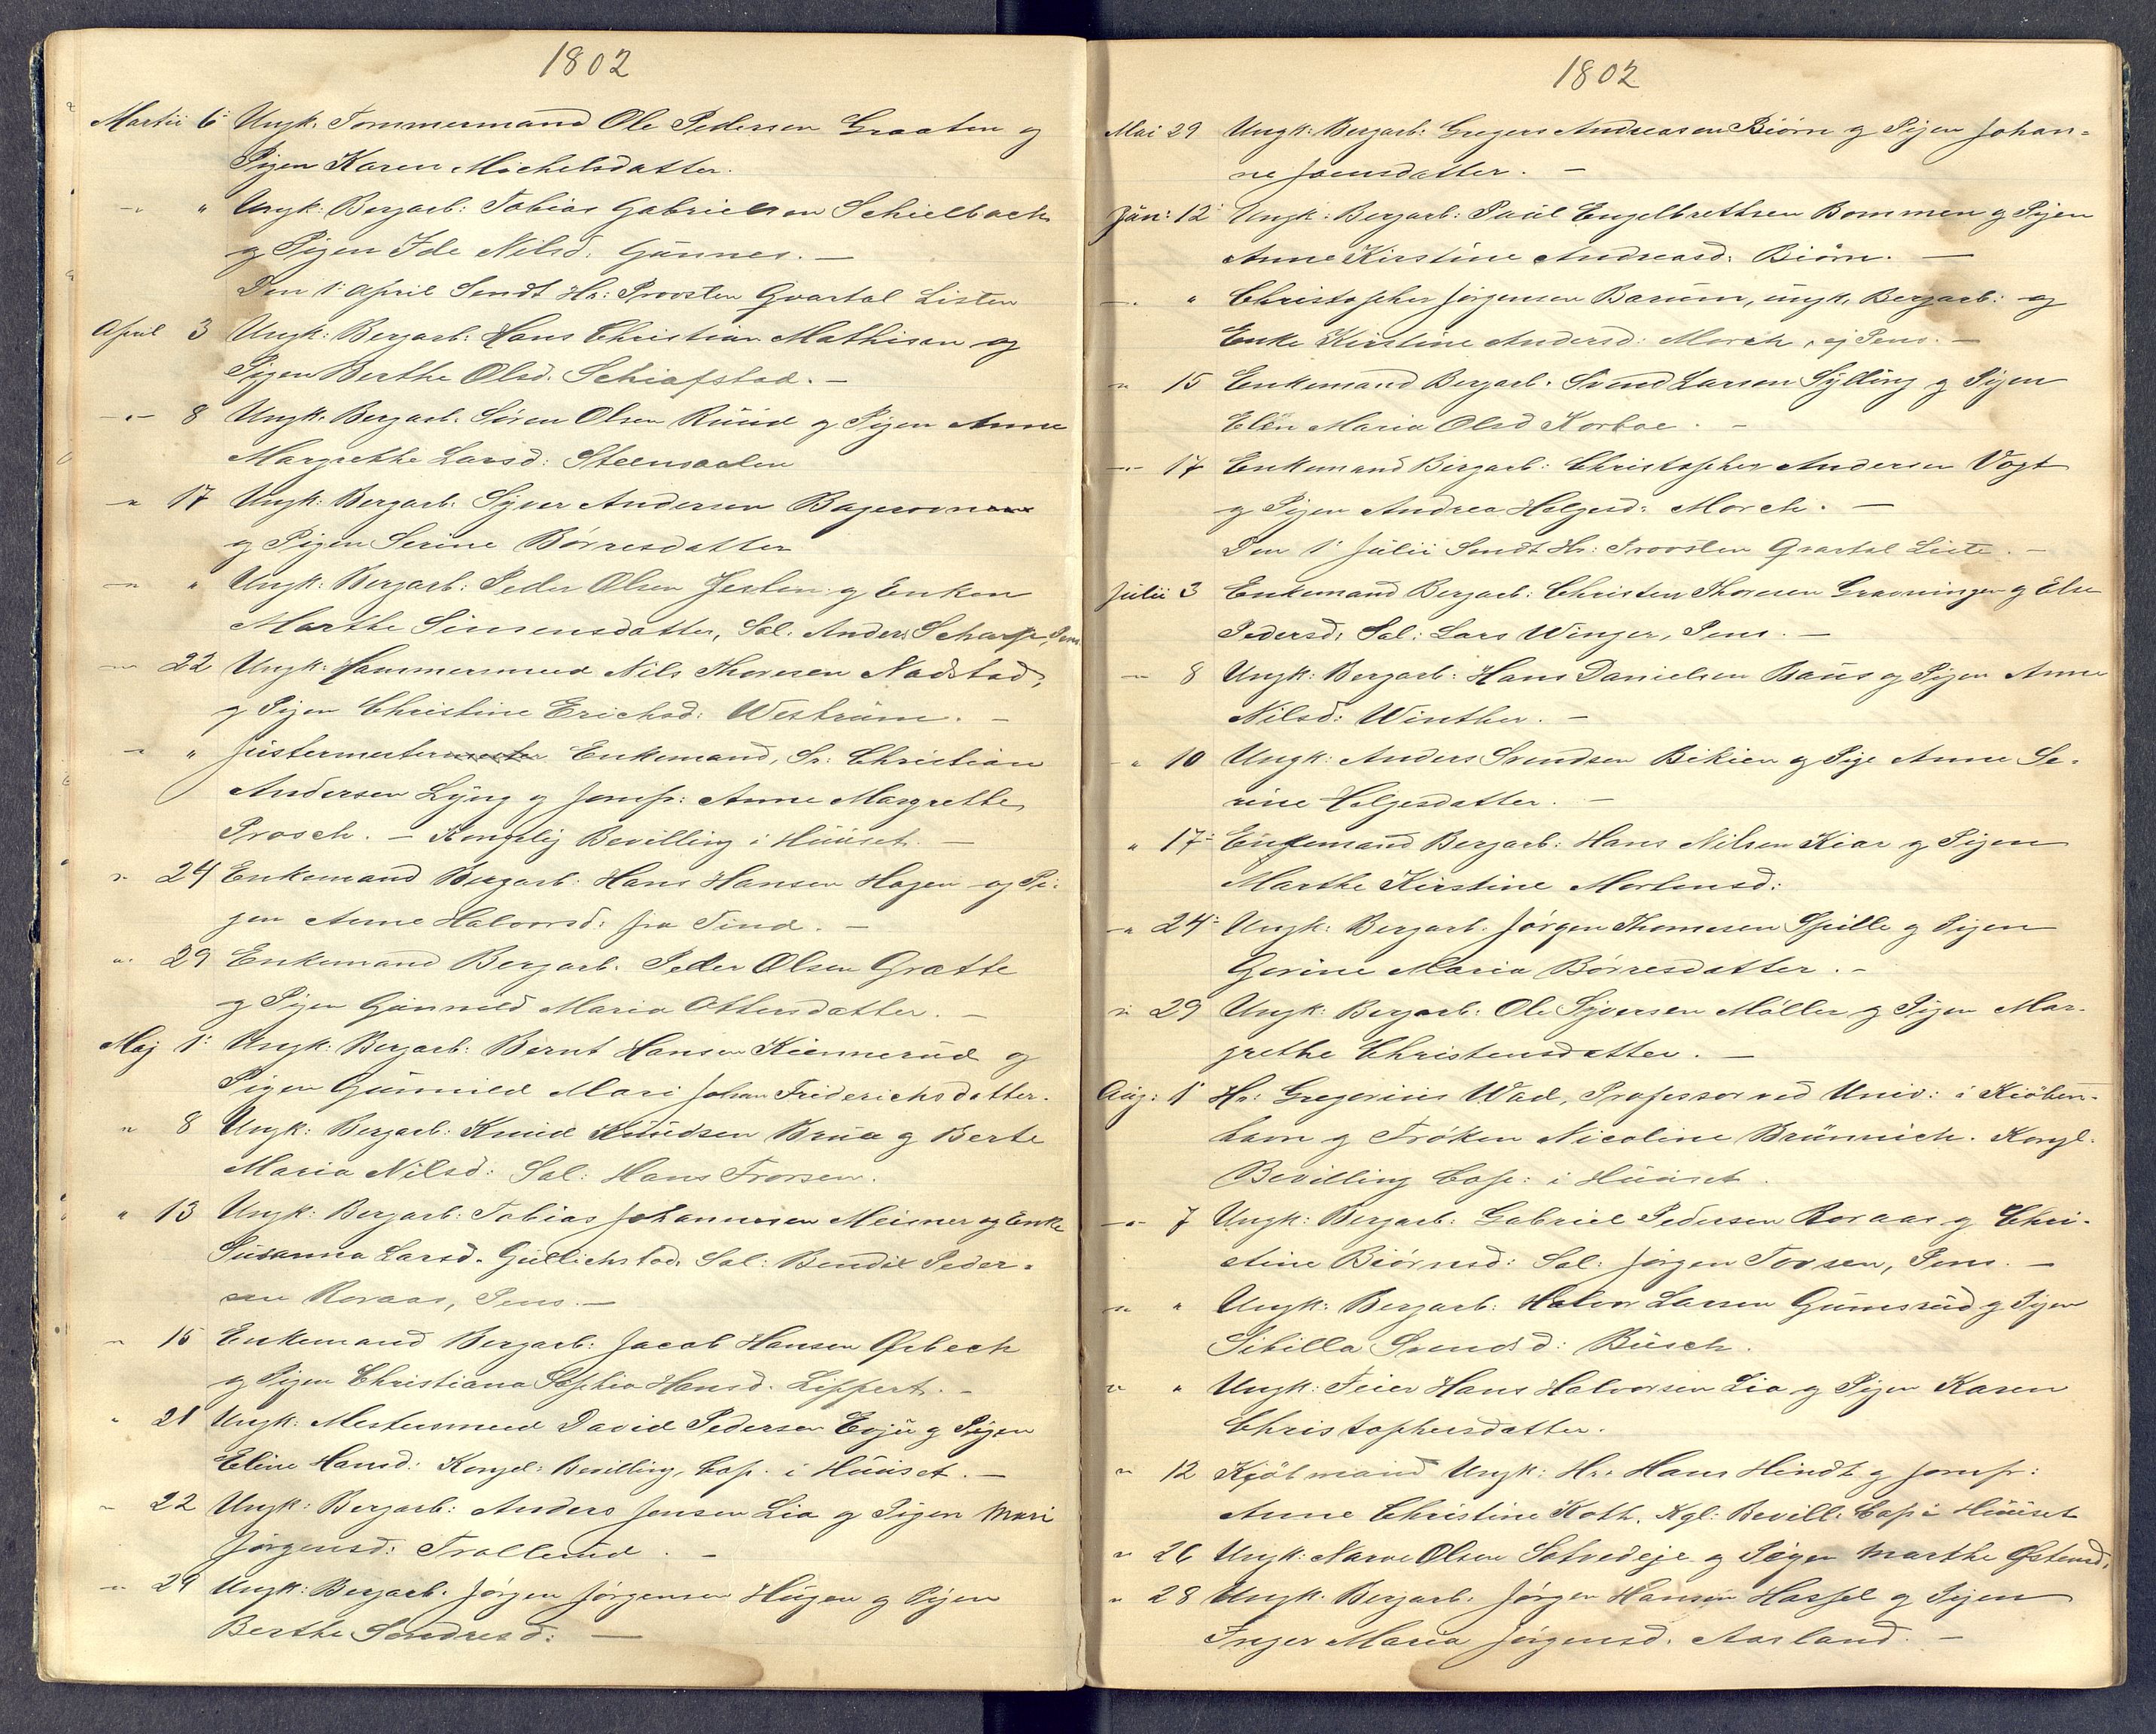 1802
Martii 6 Ungk. Tommermand Ole Pedersen Graaten og
Pigen Karen Michelsdatter.
-"- " Ungk: Bergarb: Tobias Gabrielsen Schielbach
og Pigen Ide Nilsd. Günnes. —
Den 1: April Sendt Hr: Provsten Qvartal Listen
April 3 Ungk: Bergarb: Hans Christian Mathisen og
Pigen Berthe Olsd. Schiafstad. —
-"- 8 Ungk. Bergarb. Søren Olsen Rüüd og Pigen Anne
Margrethe Larsd: Steensaaten
-"- 17 Ungk: Bergarb. Syver Andersen Bagerovn
og Pigen Serine Børresdatter
-"- " Ungk: Bergarb: Peder Olsen Jeslen og Enken
Marthe Simensdatter, Sal: Anders Scharp, Pens.
-"- 22 Ungk: Hammersmed Nils Thoresen Nadstad,
og Pigen Christine Erichsd: Westrüm. —
-"- " Jüstermester Enkemand, Sr: Christian
Andersen Lÿng og Jomfr: Anne Margrethe
Prosch. — Kongelig Bevilling i Hüüset. —
" 24 Enkemand Bergarb: Hans Hansen Hagen og Pi-
gen Anne Halvorsd: fra Tind. —
" 29 Enkemand Bergarb. Peder Olsen Grætte
og Pigen Günnild Maria Ottersdatter. —
Maj 1: Ungk: Bergarb: Bernt Hansen Kiennerüd og
Pigen Günnild Mari Johan Friderichsdatter.
" 8 Ungk: Bergarb: Knüd Knüdsen Brüa og Berte
Maria Nilsd: Sal: Hans Frorsen.
" 13 Ungk: Bergarb: Tobias Johannesen Meisner og Enke
Süsanna Larsd. Güllichstad. Sal: Bendix Peder-
sen Roraas, Pens. —
" 15 Enkemand Bergarb: Jacob Hansen Ørbech
og Pigen Christiana Sophia Hansd. Lippert. —
" 21 Ungk: Mestersmed David Pedersen Evjü og Pigen
Eline Hansd: Kongel: Bevilling, Cop. i Hüüset. —
" 22 Ungk: Bergarb: Anders Jensen Lia og Pigen Mari
Jørgensd: Trollerüd. —
" 29 Ungk: Bergarb. Jørgen Jørgensen Hügen og Pigen
Berthe Sondresd: —
1802
Mai 29 Ungk: Bergarb: Gregers Andreasen Biørn og Pigen Johan-
ne Joensdatter. —
Jün: 12 Ungk: Bergarb: Paül Engelbrethsen Bommen og Pigen
Anne Kirstine Andreasd: Biørn. —
-"- " Christopher Jørgensen Barüm, üngk. Bergarb: og
Enke Kirstine Andersd: Morch, ej Pens. —
" 15 Enkemand Bergarb. Svend Larsen Sylling og Pigen
Elen Maria Olsd Korboe. —
-"- 17 Enkemand Bergarb: Christopher Andersen Vogt
og Pigen Andrea Helgesd: Morch. —
Den 1: Jülii Sendt Hr: Provsten Qvartal Liste. —
Jülii 3 Enkemand Bergarb: Christen Thoresen Gravningen og Else
Pedersd: Sal: Lars Winger, Pens. —
-"- 8 Ungk: Bergarb: Hans Danielsen Baüs og Pigen Anne
Nilsd: Winther. —
" 10 Ungk: Anders Svendsen Bikien og Pige Anne Se-
rine Helgesdatter. —
" 17 Enkemand Bergarb: Hans Nilsen Kiar og Pigen
Marthe Kirstine Mortensd:
-"- 24 Ungk: Bergarb. Jørgen Thomesen Spille og Pigen
Gorine Maria Børresdatter. —
" 29 Ungk: Bergarb: Ole Syversen Møller og Pigen Mar-
grethe Christensdatter. —
Aüg: 1 Hr: Gregorius Wad, Professor ved Univ: i Kiøben-
havn og Frøken Nicoline Brünnich. Kongl.
Bevilling Cop: i Hüüset.
-"- 7 Ungk: Bergarb: Gabriel Pedersen Roraas og Chri-
stine Biørnsd: Sal: Jørgen Tovsen, Pens. —
" " Ungk: Bergarb: Halvor Larsen Gümsrüd og Pigen
Sibilla Svendsd: Büsch.
" " Ungk: Feier Hans Halvorsen Lia og Pigen Karen
Christophersdatter.
" 12 Kjøbmand Ungk: Hr: Hans Hindt og Jomfr:
Anne Christine Koth. Kgl: Bevill: Cop i Hüüset
" 26 Ungk: Narve Olsen Sølvedeje og Pigen Marthe Østensd.
" 28 Ungk. Bergarb. Jørgen Hansen Hassel og Pigen
Inger Maria Jørgensd. Aasland. —